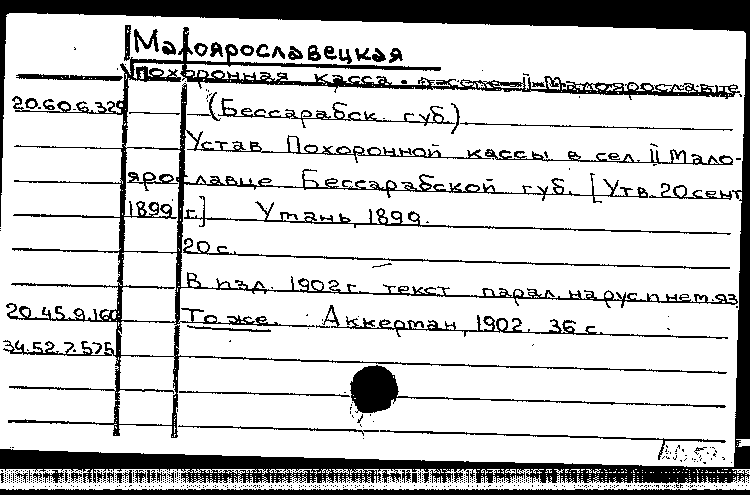 Малоярославецкая
похоронная касса. в селе II Малоярославце
20.60.6.329 (Бессарабск. губ.)
Устав Похоронной кассы в сел. II Мало-
ярославце Бессарабской губ. [Утв. 20 сент.
1899 г.] Умань, 1899.
20 с.
В изд. 1902 г. текст парал. на рус. и нем. яз.
20.45.9.160 То же. Аккерман, 1902. 36 с.
34.52.7.575